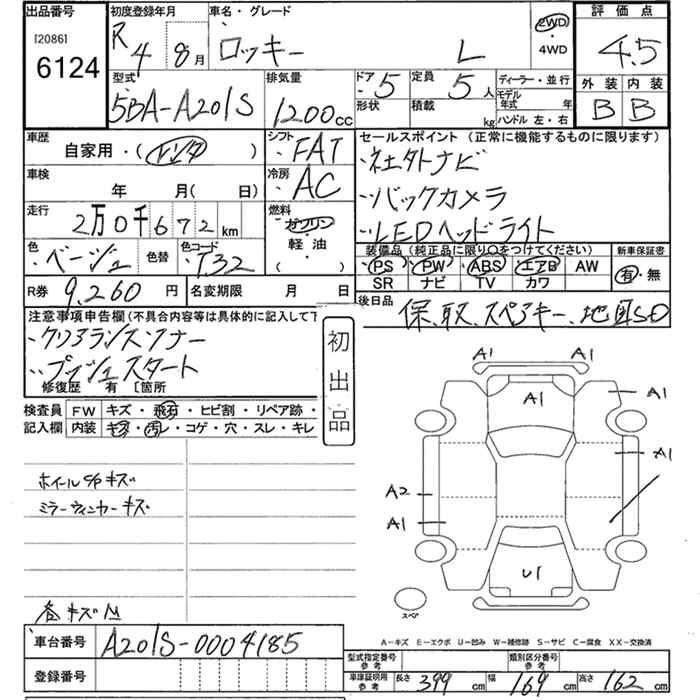 出品番号
[2086]
6124
初度登録年月
R4 8月
車名・グレード
ロッキー L
2WD
・
4WD
評価点
4.5
外装 内装
B B
型式
5BA-A201S
排気量
1200cc
ドア 5
形状
定員 5人
積載 kg
ディーラー・並行
モデル年式 年
ハンドル 左・右
車歴
自家用・(レンタ)
シフト
・FAT
車検
年 月( 日)
冷房
・AC
走行
2万0千672km
燃料
ガソリン
軽油
( )
色
・ベージュ
色替
色コード
・T32
R券 9,260円
名変期限 月 日
セールスポイント (正常に機能するものに限ります)
・社外ナビ
・バックカメラ
・LEDヘッドライト
装備品 (純正品に限り○をつけてください)
PS・PW・ABS・エアB AW
SR ナビ TV カワ
新車保証書
有・無
後日品
保、取、スペアキー、地図SD
注意事項申告欄(不具合内容等は具体的に記入して下
・クリアランスソナー
・プッシュスタート
修復歴 有 [箇所
初出品
検査員 FW キズ・飛石・ヒビ割・リペア跡・
記入欄 内装 キズ・汚レ・コゲ・穴・スレ・キレ
ホイールC/Pキズ
ミラーウィンカーキズ
各キズM
A1 A1
A1
A1
A1
A2
A1
U1
スペア
車台番号 A201S-0004185
登録番号
A-キズ E-エクボ U-凹み W-補修跡 S-サビ C-腐食 XX-交換済
型式指定番号 参考
類別区分番号 参考
車庫証明用 参考 長さ 399cm 幅 169cm 高さ 162cm